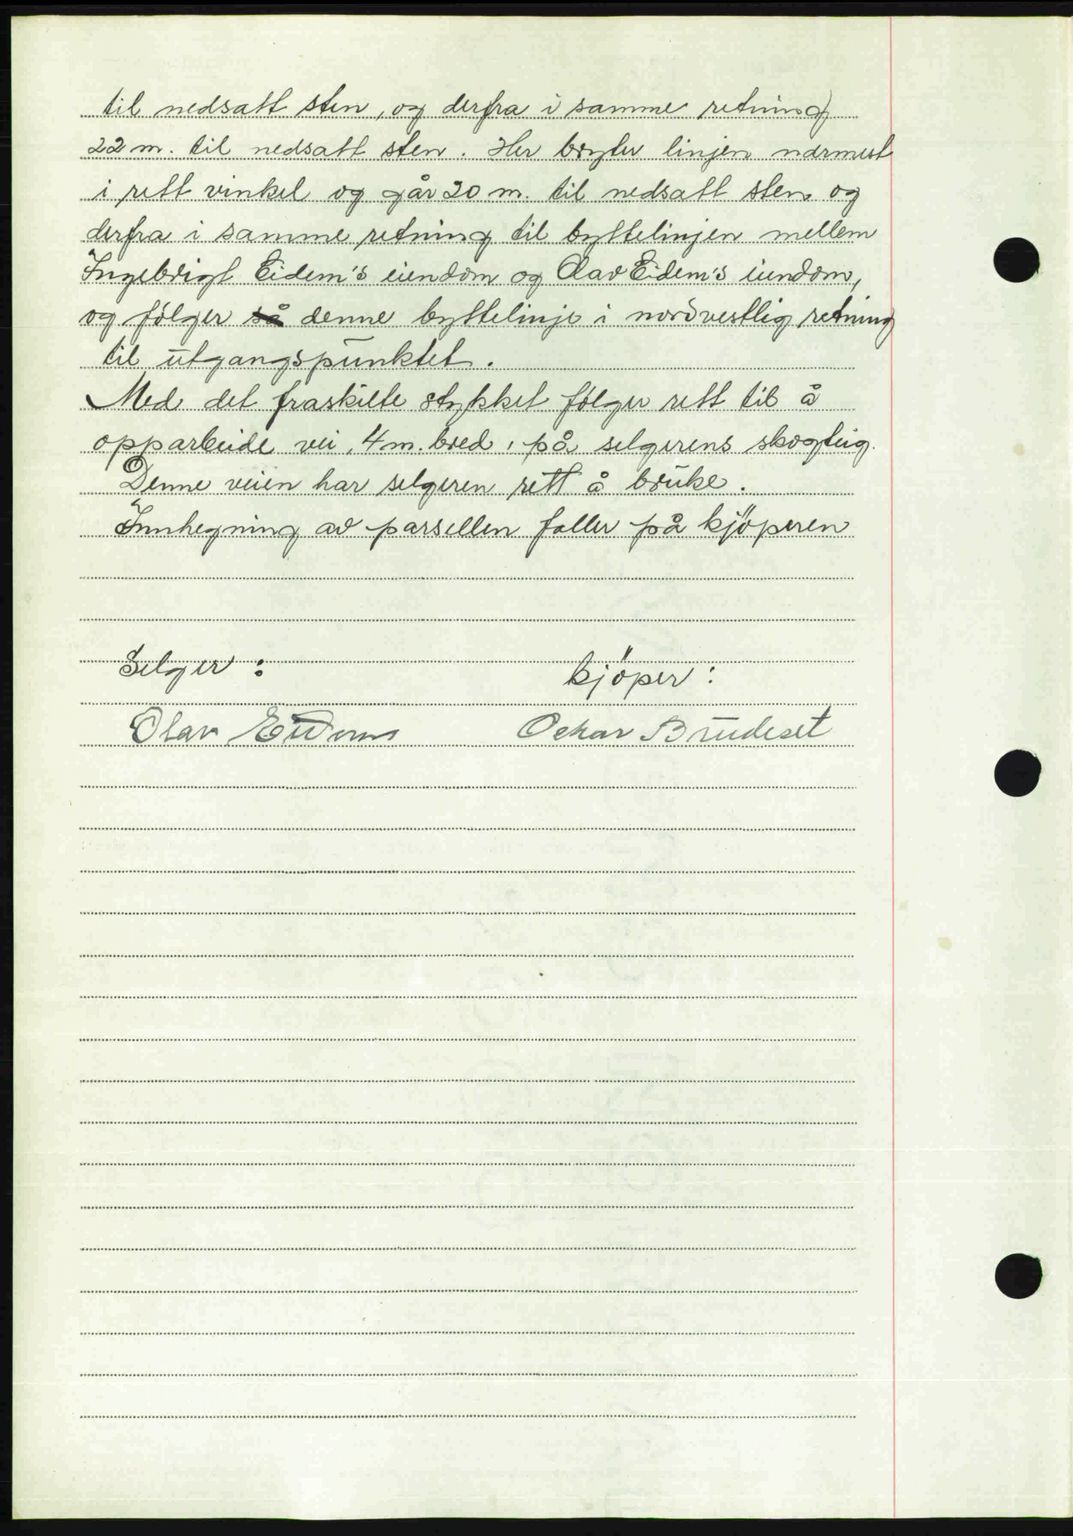 til nedsatt sten, og derfra i samme retning
22 m. til nedsatt sten. Her bryter linjen nærmest
i rett vinkel og går 20 m. til nedsatt sten og
derfra i samme retning til byttelinjen mellem
Ingebrigt Eidem's eiendom og Olav Eidem's eiendom,
og følger så denne byttelinje i nordvestlig retning
til utgangspunktet.
Med det fraskilte stykket følger rett til å
opparbeide vei, 4 m. bred, på selgerens skogteig.
Denne veien har selgeren rett å bruke.
Innhegning av parsellen faller på kjöperen
Selger :
kjöper :
Olav Eidem
Oskar Brudeset